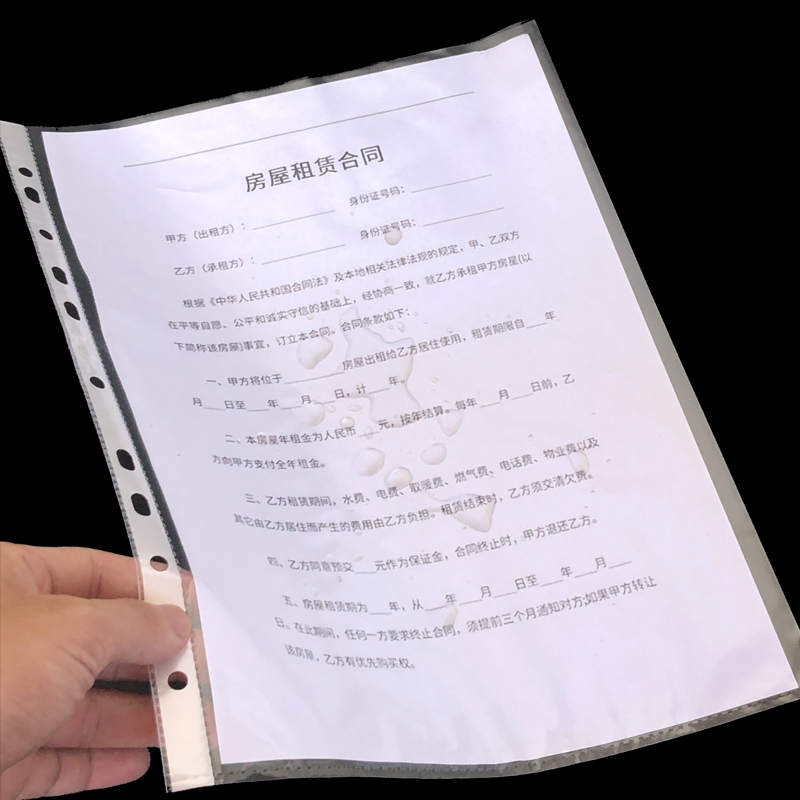 房屋租赁合同
甲方（出租方）：__________ 身份证号码：__________
乙方（承租方）：__________ 身份证号码：__________
根据《中华人民共和国合同法》及本地相关法律法规的规定，甲、乙双方
在平等自愿、公平和诚实守信的基础上，经协商一致，就乙方承租甲方房星(以
下简称该房屋)事宜，订立本合同。合同条款如下：
一、甲方将位于__________房屋出租给乙方居住使用，租赁期限自___年
月___日至___年___月___日，计___年。
二、本房屋年租金为人民币___元，按年结算。每年___月___日前，乙
方向甲方支付全年租金。
三、乙方租赁期间，水费、电费、取暖费、燃气费、电话费、物业费以及
其它由乙方居住而产生的费用由乙方负担。租赁结束时，乙方须交清欠费。
四、乙方同意预交___元作为保证金，合同终止时，甲方退还乙方。
五、房屋租赁期为___年，从___年___月___日至___年___月___
日。在此期间，任何一方要求终止合同，须提前三个月通知对方;如果甲方转让
该房屋，乙方有优先购买权。